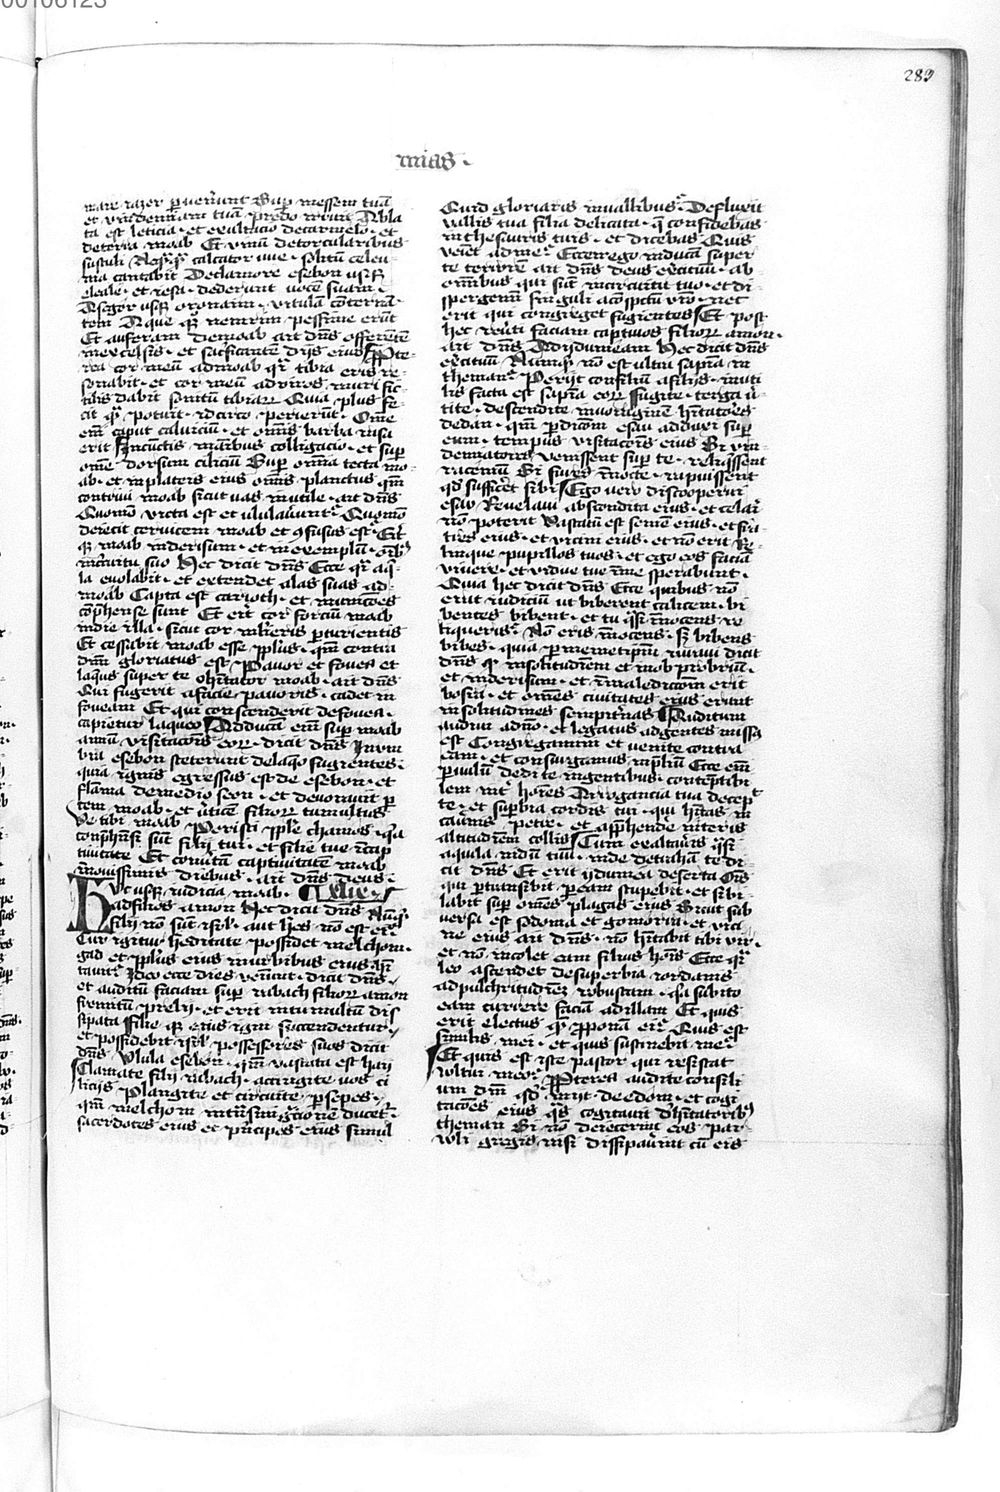 289
mias ·
mare iazer ꝑueneru͂nt Sup͂ messem tuā
et vindemiam tuā predo irruit Abla
ta est leticia · et exultacio decarmelo · et
deterra moab Et vinū detorcularibus
sustuli Neq̄q̄ calcator vue · solitū celeu
ma cantabit Declamore esebon usq̄
eleale · et iesa · dederunt uocem suam ·
Asegor usq̄ oronaim · vitulā cōternā
tem Aque q̄ nemrim pessime erūt
Et auferam demoab ait dn̄s offerētē
inexcelsis · et sac͛ficantē dijs eius Prop̄te
rea cor meū admoab q̄i tibia eris re
sonabit · et cor meū adviros muri fic
tilis dabit sonitū tibiarꝝ Quia plus fe
cit q̄ potuit · idcirco perierūt · Om̄e
em̄ caput caluiciū · et om̄is barba rasa
erit Incūctis manibus colligacio · et sup̄
om̄e dorsum ciliciū Sup̄ om̄ia tecta mo
ab · et inplateis eius om̄is planctus qm̄
contriui moab sicut uas inutile · ait dn̄s
Quomō victa est et ululauerunt Quomō
deiecit ceruicem moab et ꝯfusus est Erit
q̄ moab inderisum · et inexemplū · oīb3
incircuitu suo Hec dicit dn̄s Ecce q̄i aq̄
la euolabit · et extendet alas suas ad
moab Capta est carioth · et municōes
cōp̄hense sunt Et erit cor forciū moab
indie illa · sicut cor mulieris ꝑturientis
Et cessabit moab esse pp̄lus · qm̄ contra
dn̄m gloriatus est Pauor et fouea et
laqus super te o hītator moab · ait dn̄s
Qui fugerit afacie pauoris · cadet in
foueam Et qui conscenderit defouea ·
capietur laqueo Adducā em̄ sup̄ moab
annū visitacōis eorꝝ · dicit dn̄s Inum
bra esebon steterunt delaqo fugientes ·
quia ignis egressus est de esebon · et
flāma demedio seon · et deuorauit ꝑ
tem moab · et uerticē filiorꝝ tumultus
Ve tibi moab · Peristi pp̄le chamos · q̄a
conp̄hēsi sūt filij tui · et filie tue īcap
tiuitatē Et conuertā captiuitatē moab
īnouissimis diebus · ait dn̄s deus ·
Huc usq̄ iudicia moab · xlix
Adfilios amon Hec dicit dn̄s Nūq̄d
filij nō sunt isrl̄ · aut h̄es nō est ei
Cur igitur h̄editate possidet melchom ·
gad et pp̄lus eius inurbibus eius h̄i
tauit Ideo ecce dies veniūt · dicit dn̄s
et auditū faciam sup̄ rabach filiorꝝ amon
fremitū prelij · et erit intumultū dis
sipata filie q̄ eius igni succendentur
et possidebit isrl̄ possessores suos dicit
dn̄s Vlula esebon · qm̄ vastata est hay
Clamate filij rabach · accingite vos ci
licijs Plangite et circuite ꝑsepes ·
qm̄ melchom intrāsmigracionē ducet ·
sacerdotes eius et p͛ncipes eius simul
Quid gloriaris inuallibus Defluxit
vallis tua filia delicata · q̄ confidebas
inthesauris tuis · et dicebas Quis
veniet adme Ecce ego inducā super
te terrorē ait dn̄s deus exercituū · ab
om̄ibus qui sūt incircuitu tuo · et di
spergemī singuli aconspectu vr̄o · nec
erit qui congreget fugientes Et post
hec reuerti faciam captiuos filiorꝝ amon ·
ait dn̄s Adydumeam Hec dicit dn̄s
exercituū Nūquid nō est ultra sapia in
theman Perijt consiliū afilijs · inuti
lis facta est sapia eorꝝ Fugite · terga v͛
tite · descendite inuoragine hītatōes
dedan · qm̄ ꝑdicōm esau adduxi sup̄
eum · tempus visitacōis eius Si vin
demiatores venissent sup̄ te · reliq̄ssent
racemū Si fures innocte · rapuissent
qd̄ sufficet sibi Ego vero discooperui
esau Reuelaui abscondita eius · et celari
nō poterit Vastatū est semē eius · et fra
tres eius · et vicini eius · et nō erit Re
linque pupillos tuos · et ego eos faciā
viuere · et vidue tue in me sperabunt ·
Quia hec dicit dn̄s Ecce quibus nō
erat iudiciū ut biberent calicem · bi
bentes bibent · et tu q̄si īnocens re
liqueris Nō eris īnocens · s3 bibens
bibes · quia ꝑ memetipm̄ iuraui dicit
dn̄s q̄ insolitudinem et inob probriū ·
et inderisum · et īmaledictōm erit
bosra · et om̄es ciuitates eius erunt
insolitudines sempitnas Auditum
audiui adn̄o · et legatus adgentes missus
est Congregamini et venite contra
eam · et consurgamus inp̄liū Ecce em̄
ꝑuulū dedi te ingentibus · contēptibi
lem int͛ hoīes Arrogancia tua decepit
te · et sup̄bia cordis tui · qui hītas in
cauernis petre · et app̄hende niteris
altitudinem collis Cum exaltau͛is q̄si
aquila nidū tuū · inde detrahā te di
cit dn̄s Et erit ydumea deserta Oīs
qui ꝑtransibit ꝑ eam stupebit · et sibi
labit sup̄ om̄es plagas eius Sicut sub
uersa est sodoma et gomorra · et vici
ne eius ait dn̄s · nō hītabit ibi vir ·
et nō incolet eam filius hoīs Ecce q̄i
leo ascendet desuperbia iordanis
adpulchritudinē robustam · q̄a subito
eam currere faciā adillam Et quis
erit electus q̄ pp̄onā ei Quis est
similis mei · et quis sustinebit me
Et quis est iste pastor qui resistat
vultui meo Prop̄terea audite consili
um dn̄i qd̄ inijt de edom · et cogi
tacōes eius q̄s cogitauit d͛hītatorib3
theman Si nō deiecerint eos par
uuli gregis nisi dissipauerint cū eis